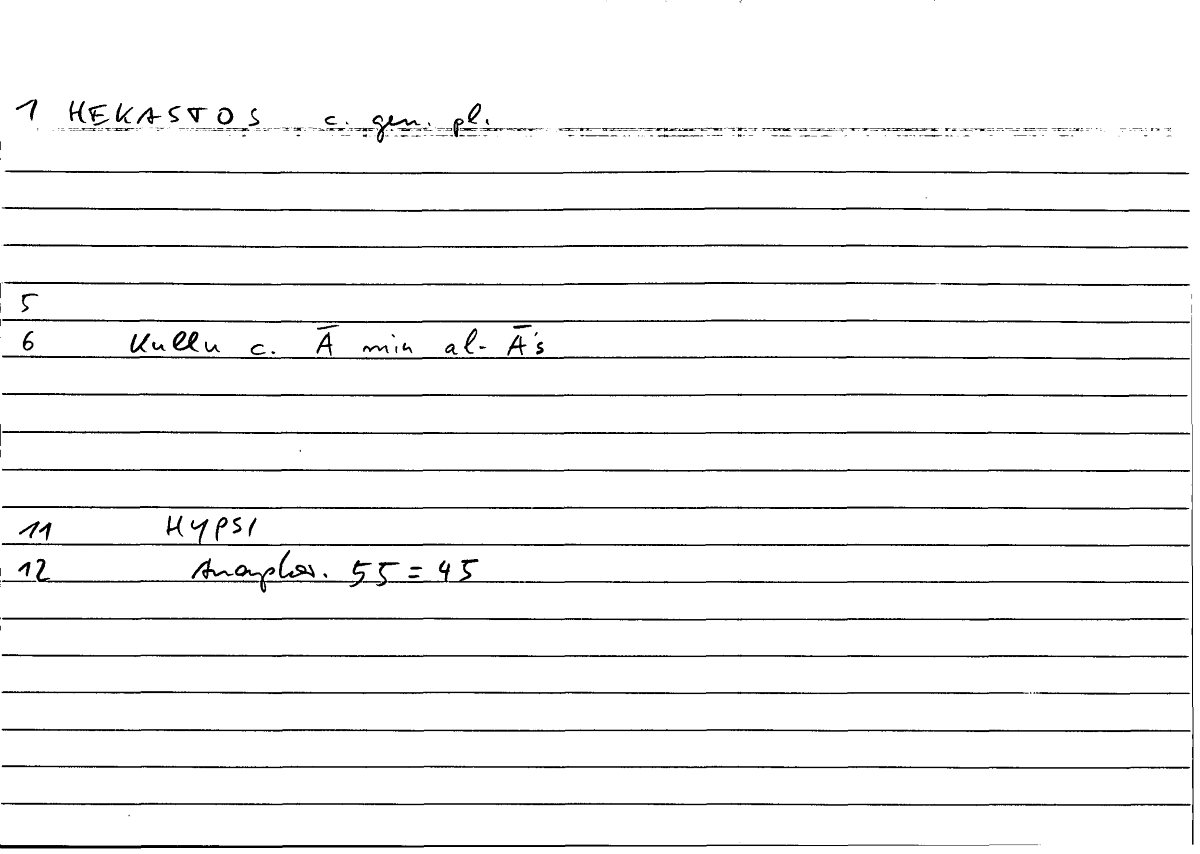 1 HEKASTOS c. gen. pl.
5
6 Kullu c. Ā min al-Ā's
11 HYPSI
12 Anaphor. 55 = 45